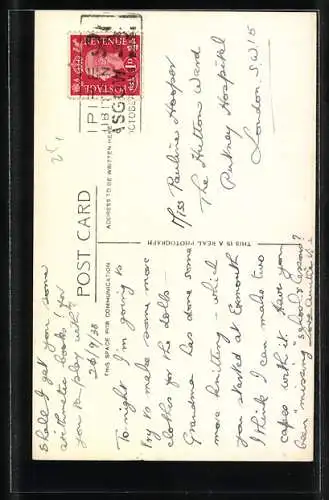 POST CARD
THIS SPACE FOR COMMUNICATION
ADDRESS TO BE WRITTEN HERE
THIS IS A REAL PHOTOGRAPH
POSTAGE
REVENUE
1D
OCTOBER
Miss Pauline Hooper
The Hutton Ward
Putney Hospital
London S.W.15
26/9/38
Tonight I'm going to
try to make some more
clothes for the dolls -
Grandma has done some
more knitting - which
you started at Exmouth
I think I can make two
capes with it. Have you
been "missing" school & lessons?
Love Auntie
Shall I get you some
arithmetic books! for
you to play with?